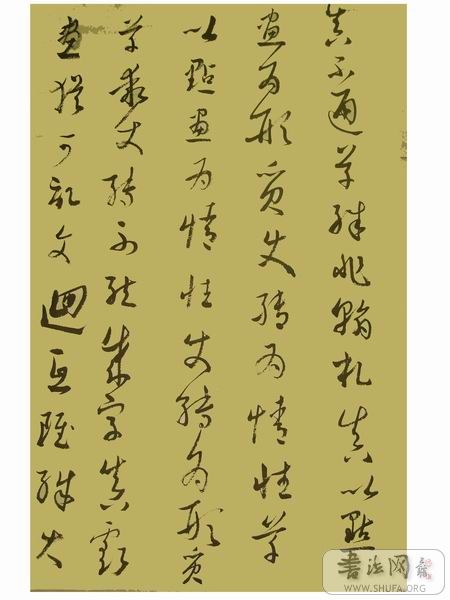 真不通草殊非翰札真以點
畫為形質使轉為情性草
以點畫為情性使轉為形質
草乖使轉不能成字真虧
畫猶可記文迴互雖殊大
書法网
WWW.SHUFA.ORG